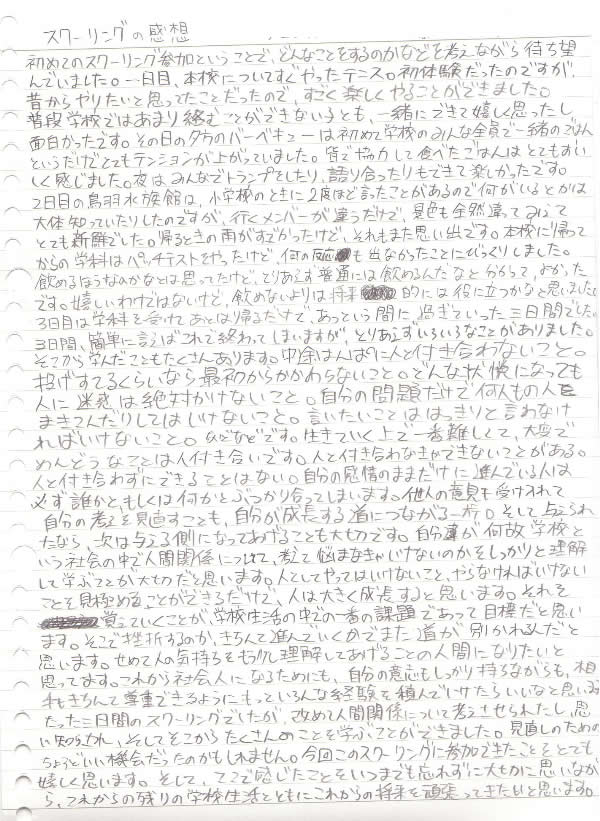 スクーリングの感想
初めてのスクーリング参加ということで、どんなことをするのかなどを考えながら待ち望
んでいました。一日目、本校についてすぐやったテニス。初体験だったのですが、
昔からやりたいと思ってたことだったので、すごく楽しくやることができました。
普段学校ではあまり絡むことができない子とも、一緒にできて嬉しく思ったし
面白かったです。その日の夕方のバーベキューは初めて学校のみんな全員で一緒のごはん
というだけでとてもテンションが上がっていました。皆で協力して食べたごはんはとてもおい
しく感じました。夜はみんなでトランプをしたり、語り合ったりもできて楽しかったです。
2日目の鳥羽水族館は、小学校のときに2度ほど言ったことがあるので何がいるとかは
大体知っていたりしたのですが、行くメンバーが違うだけで、景色も全然違ってみえて
とても新鮮でした。帰るときの雨がすごかったけど、それもまた思い出です。本校に帰って
からの学科はパッチテストをやったけど、何の反応も出なかったことにびっくりしました。
飲めるほうなのかなとは思ってたけど、とりあえず普通には飲めるんだなと分かって、よかった
です。嬉しいわけではないけど、飲めないよりは将来的には役に立つかなと思いました。
3日目は学科を受けてあとは帰るだけで、あっという間に過ぎていった三日間でした。
3日間、簡単に言えばこれで終わってしまいますが、とりあえずいろいろなことがありました。
そこから学んだこともたくさんあります。中途はんぱに人と付き合わないこと。
投げすてるくらいなら最初からかかわらないこと。どんな状態になっても
人に迷惑は絶対かけないこと。自分の問題だけで何人もの人を
まきこんだりしてはいけないこと。言いたいことははっきりと言わなけ
ればいけないこと。などなどです。生きていく上で一番難しくて、大変で
めんどうなことは人付き合いです。人と付き合わなきゃできないことがある。
人と付き合わずにできることはない。自分の感情のままだけに進んでいる人は
必ず誰かと、もしくは何かとぶつかり合ってしまいます。他人の意見を受け入れて
自分の考えを見直すことも、自分が成長する道につながる一歩。そして与えられ
たなら、次は与える側になってあげることも大切です。自分達が何故学校と
いう社会の中で人間関係について、考えて悩まなきゃいけないのかをしっかりと理解
して学ぶことが大切だと思います。人としてやってはいけないこと、やらなければいけない
ことを見極めることができるだけで、人は大きく成長すると思います。それを
覚えていくことが、学校生活の中での一番の課題であって目標だと思い
ます。そこで挫折するのか、きちんと進んでいくかでまた道が別かれるんだと
思います。せめて人の気持ちをもう少し理解してあげることの人間になりたいと
思ってます。これから社会人になるためにも、自分の意志もしっかり持ちながらも、相
手もきちんと尊重できるようにもっといろんな経験を積んでいけたらいいなと思います。
たった三日間のスクーリングでしたが、改めて人間関係について考えさせられたし、思
い知らされ、そしてそこからたくさんのことを学ぶことができました。見直しのための
ちょうどいい機会だったのかもしれません。今回このスクーリングに参加できたことをとても
嬉しく思います。そして、ここで感じたことをいつまでも忘れずに大切に思いなが
ら、これからの残りの学校生活とともにこれからの将来を頑張ってきたいと思います。